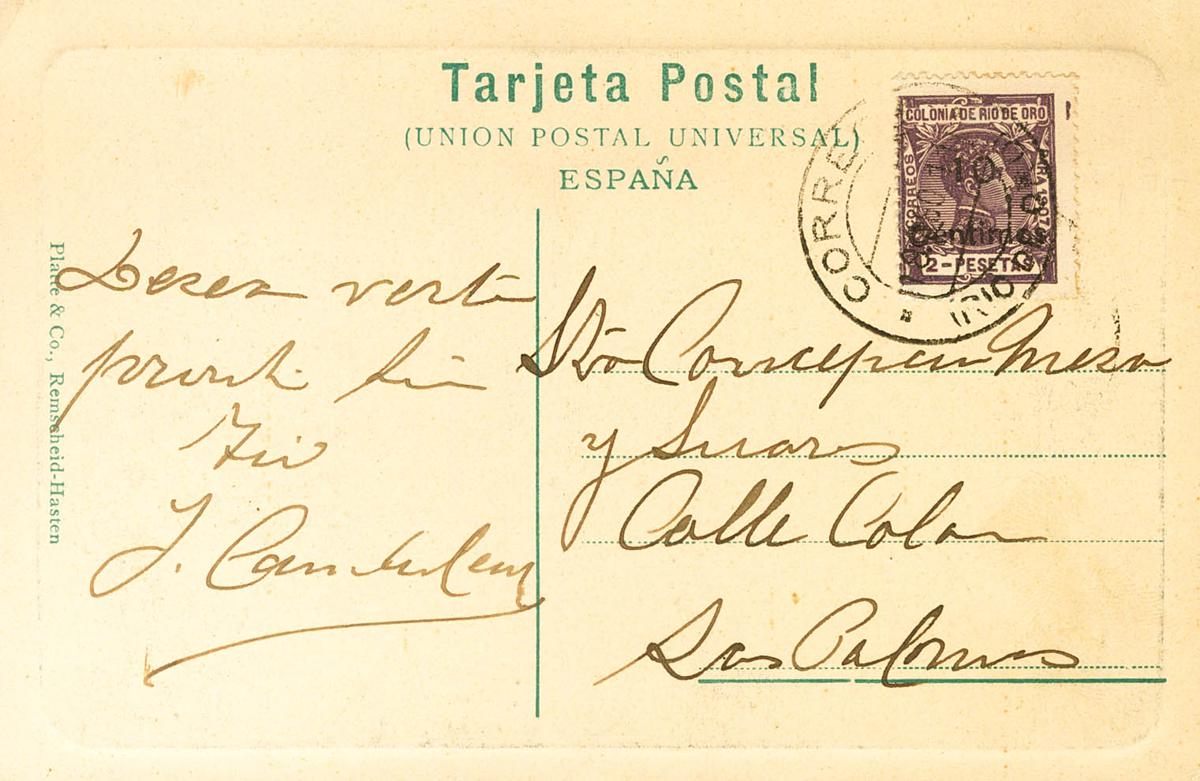 Tarjeta Postal
(UNION POSTAL UNIVERSAL)
ESPAÑA
COLONIA DE RIO DE ORO
CORREOS
PARA 1907
10
Centimos
2-PESETAS
CORRE
RIO
Platte & Co., Remscheid-Hasten
Desea verte
pronto tu
Tio
J.
Sta Concepcion Mesa
y Suares
Calle Colon
Las Palmas